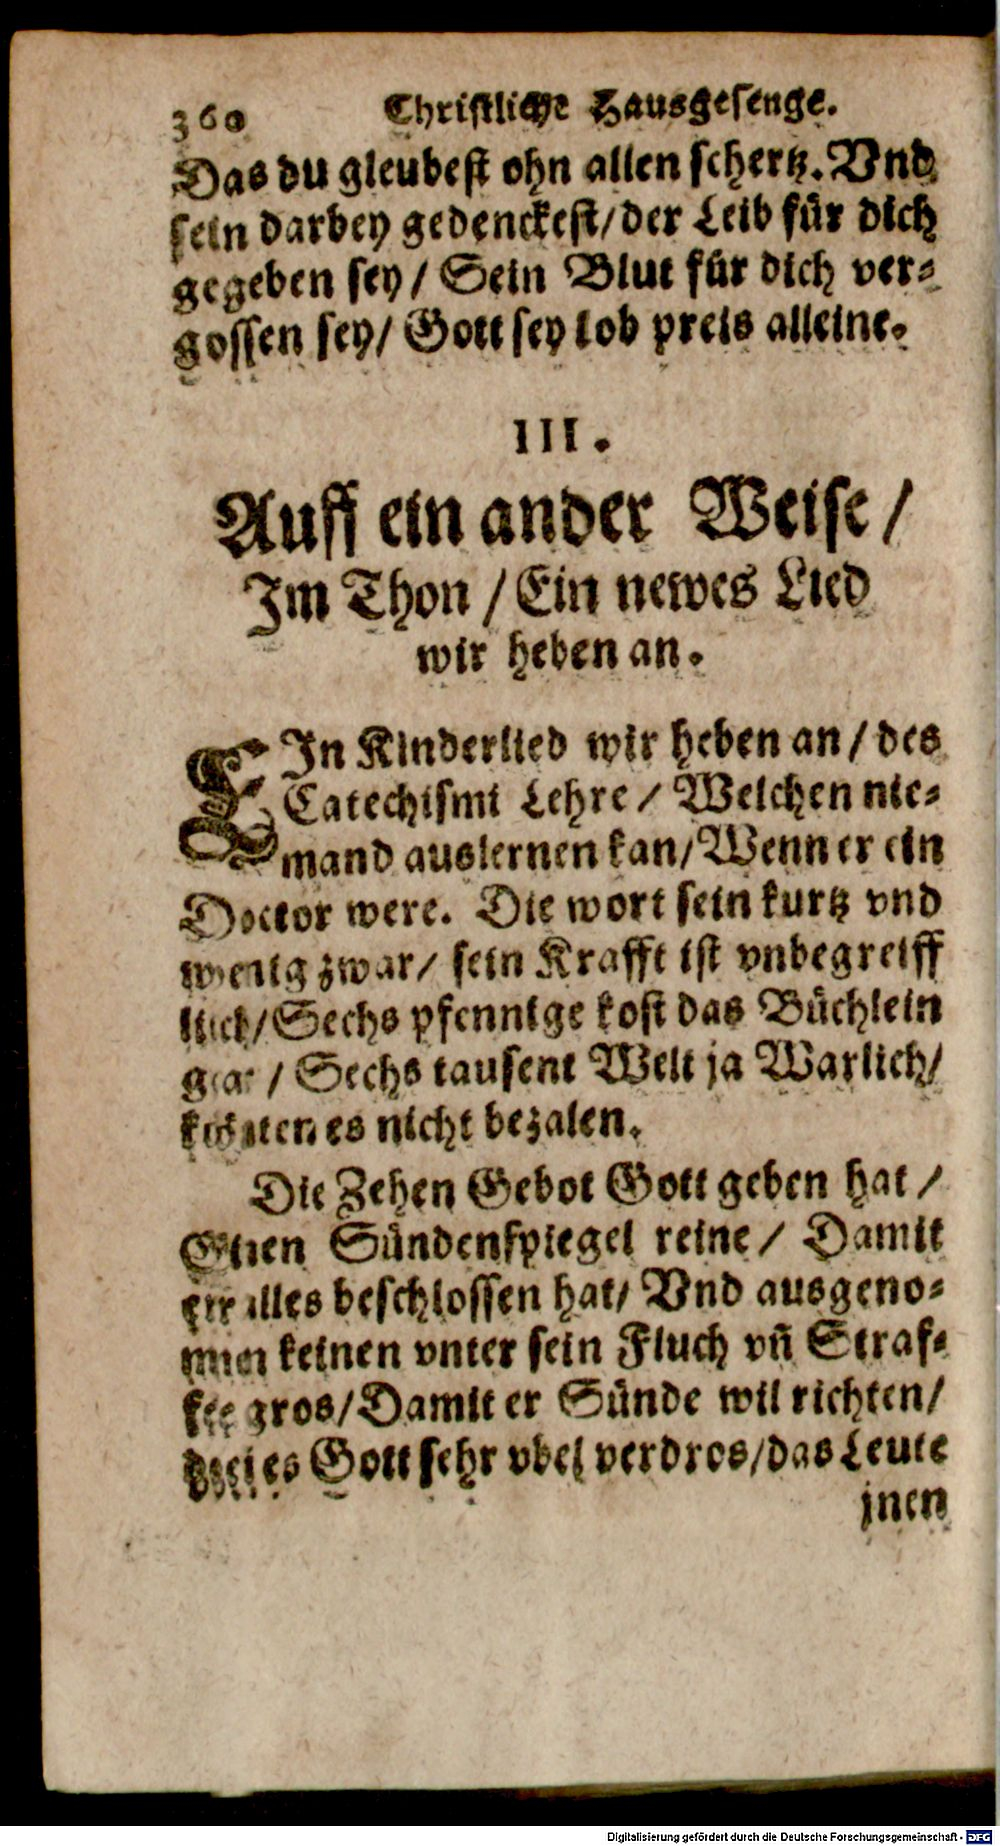 360 Christliche Hausgesenge.
Das du gleubest ohn allen schertz. Vnd
sein darbey gedenckest/ der Leib für dich
gegeben sey/ Sein Blut für dich ver⸗
gossen sey/ Gott sey lob preis alleine.
III.
Auff ein ander Weise /
Im Thon / Ein newes Lied
wir heben an.
EIn Kinderlied wir heben an / des
Catechismi Lehre / Welchen nie⸗
mand auslernen kan/ Wenn er ein
Doctor were. Die wort sein kurtz vnd
wenig zwar/ sein Krafft ist vnbegreiff
lich/ Sechs pfennige kost das Büchlein
gar / Sechs tausent Welt ja Warlich/
könten es nicht bezalen.
Die Zehen Gebot Gott geben hat /
Einen Sündenspiegel reine / Damit
er alles beschlossen hat/ Vnd ausgeno⸗
men keinen vnter sein Fluch vñ Straf⸗
fe gros/ Damit er Sünde wil richten/
es Gott sehr vbel verdros/ das Leute
jnen
Digitalisierung gefördert durch die Deutsche Forschungsgemeinschaft - DFG